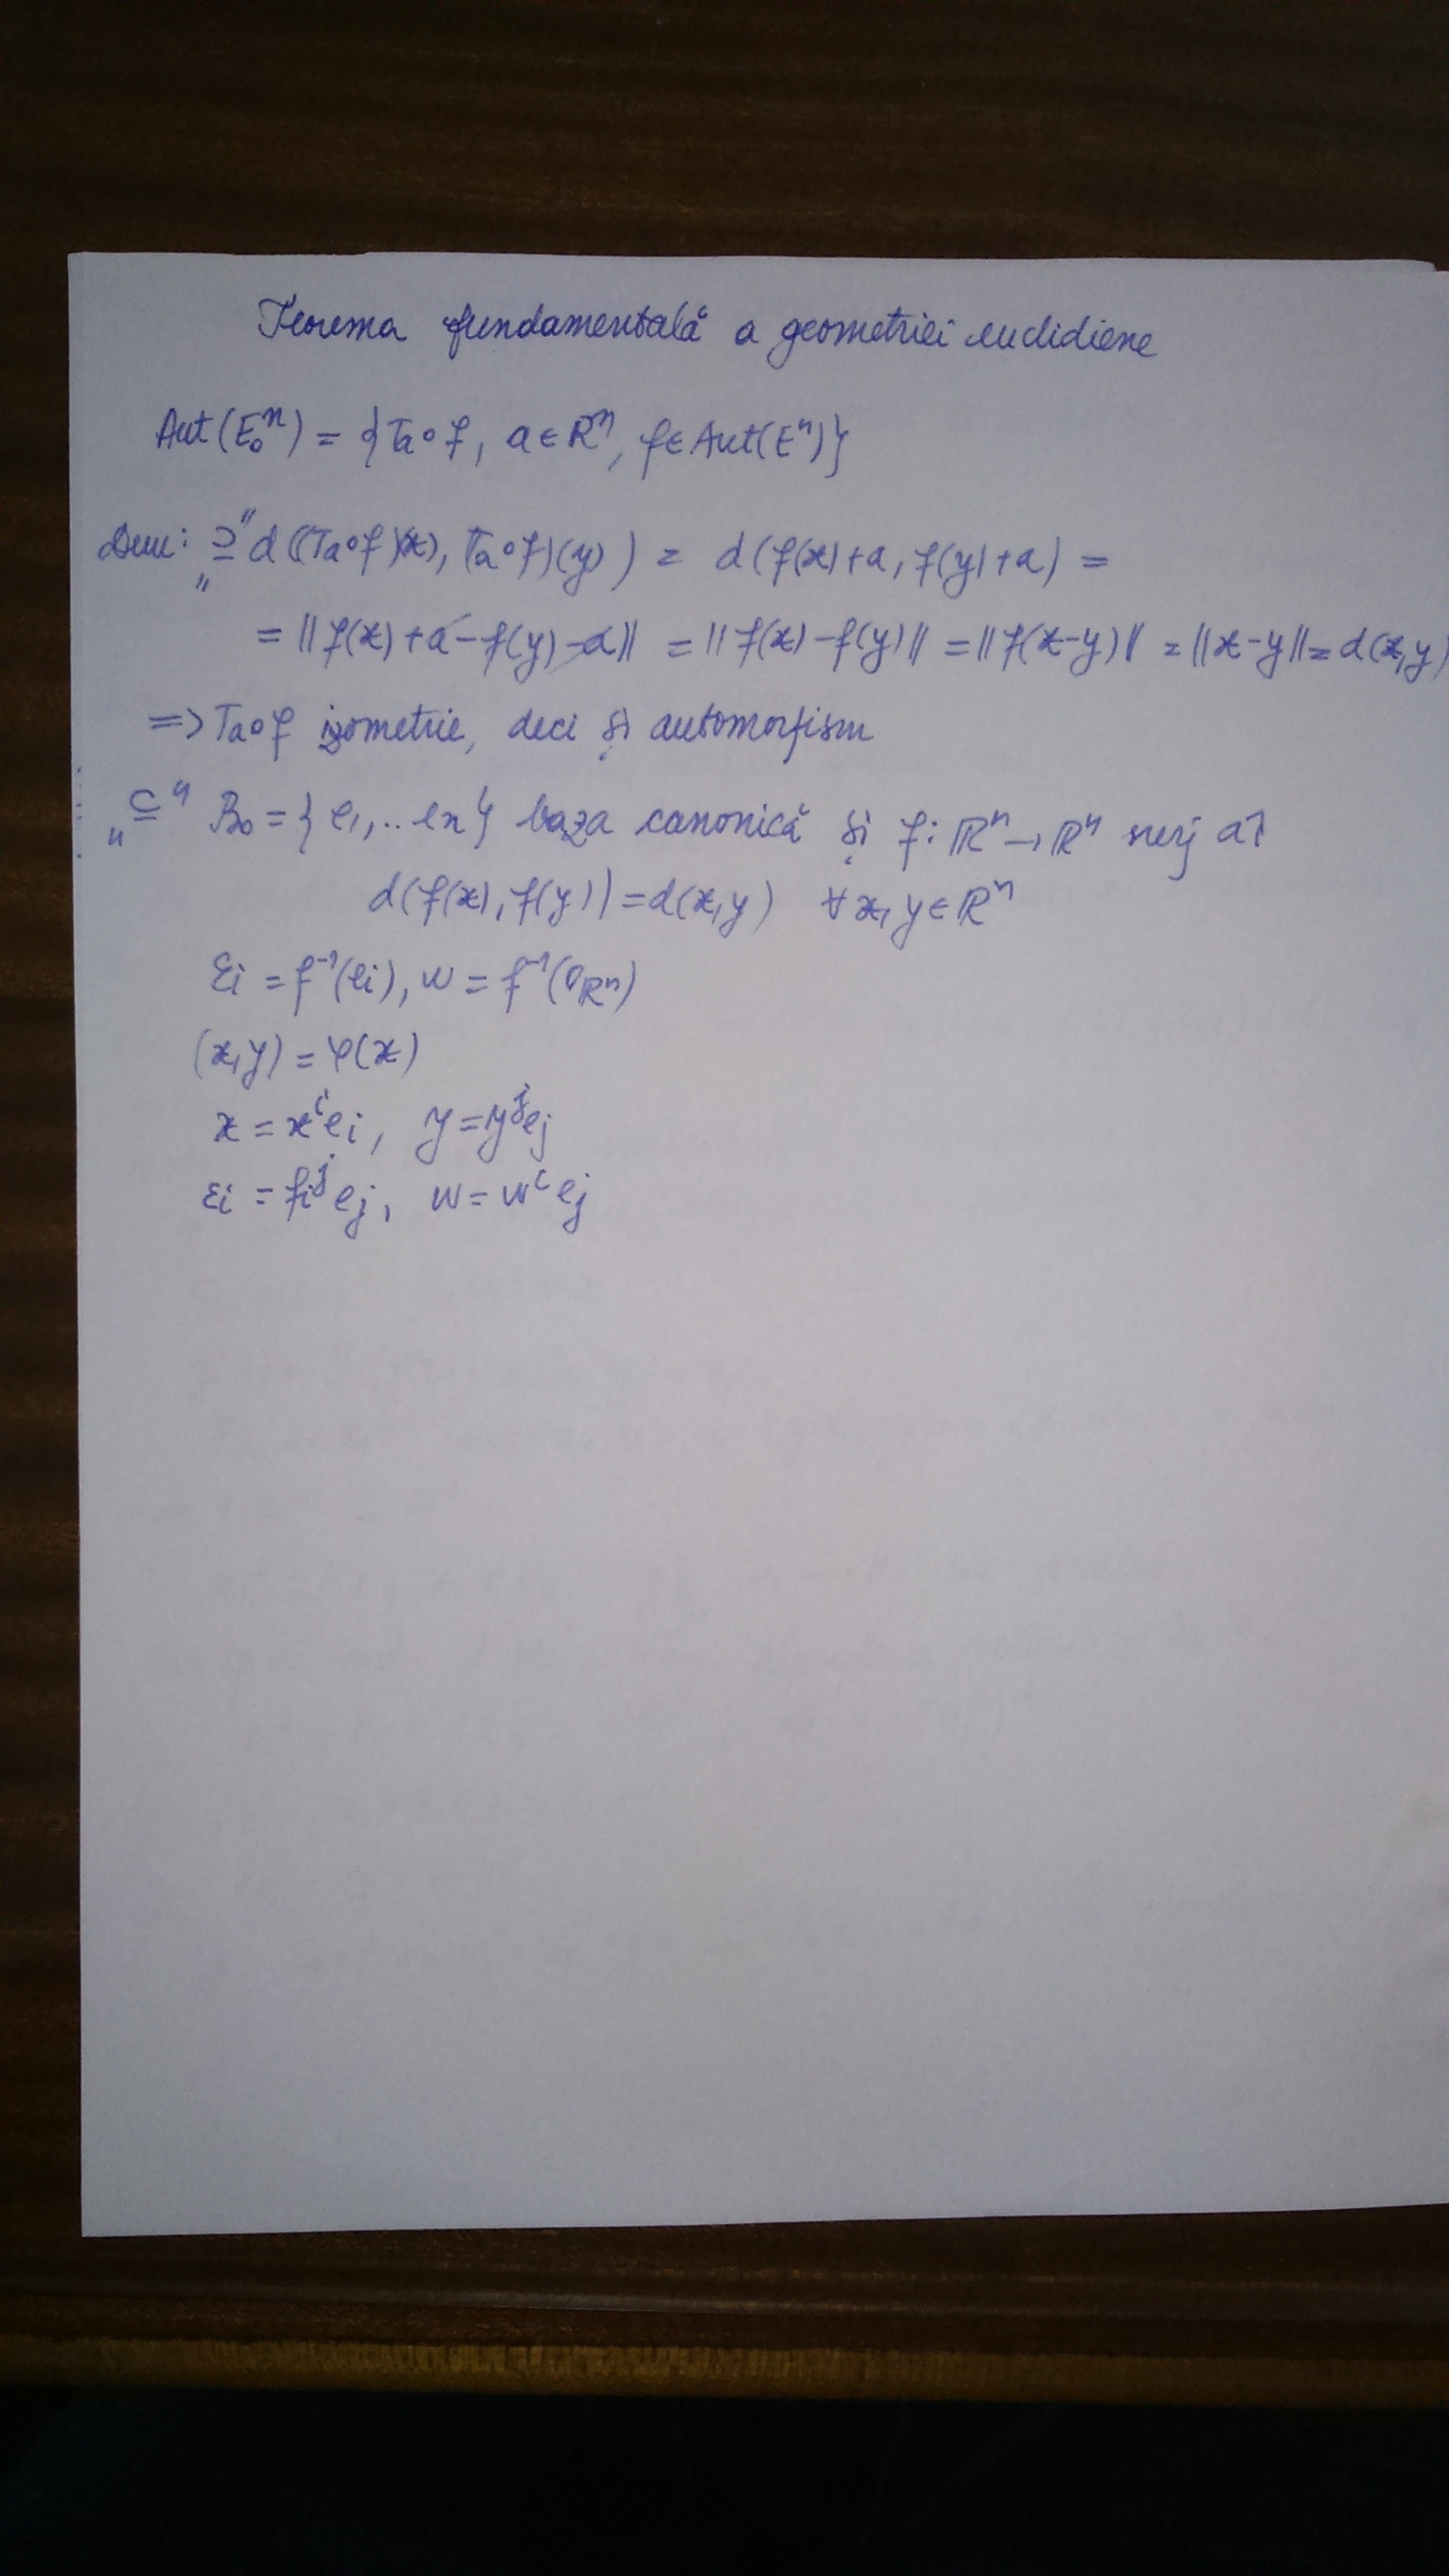 Teorema fundamentală a geometriei euclidiene
Aut(E₀ⁿ) = {Ta∘f, a∈Rⁿ, f∈Aut(Eⁿ)}
Dem: „⊇" d((Ta∘f)(x), (Ta∘f)(y)) = d(f(x)+a, f(y)+a) =
= ||f(x)+a-f(y)-a|| = ||f(x)-f(y)|| = ||f(x-y)|| = ||x-y|| = d(x,y)
=> Ta∘f izometrie, deci și automorfism
„⊆" B₀ = {e₁,..en} baza canonică și f: ℝⁿ→ℝⁿ surj aî
d(f(x), f(y)) = d(x,y) ∀x,y∈ℝⁿ
εi = f⁻¹(ei), w = f⁻¹(0ℝⁿ)
(x,y) = φ(x)
x = xⁱei, y = yʲej
εi = fiʲ ej, w = wⁱ ej